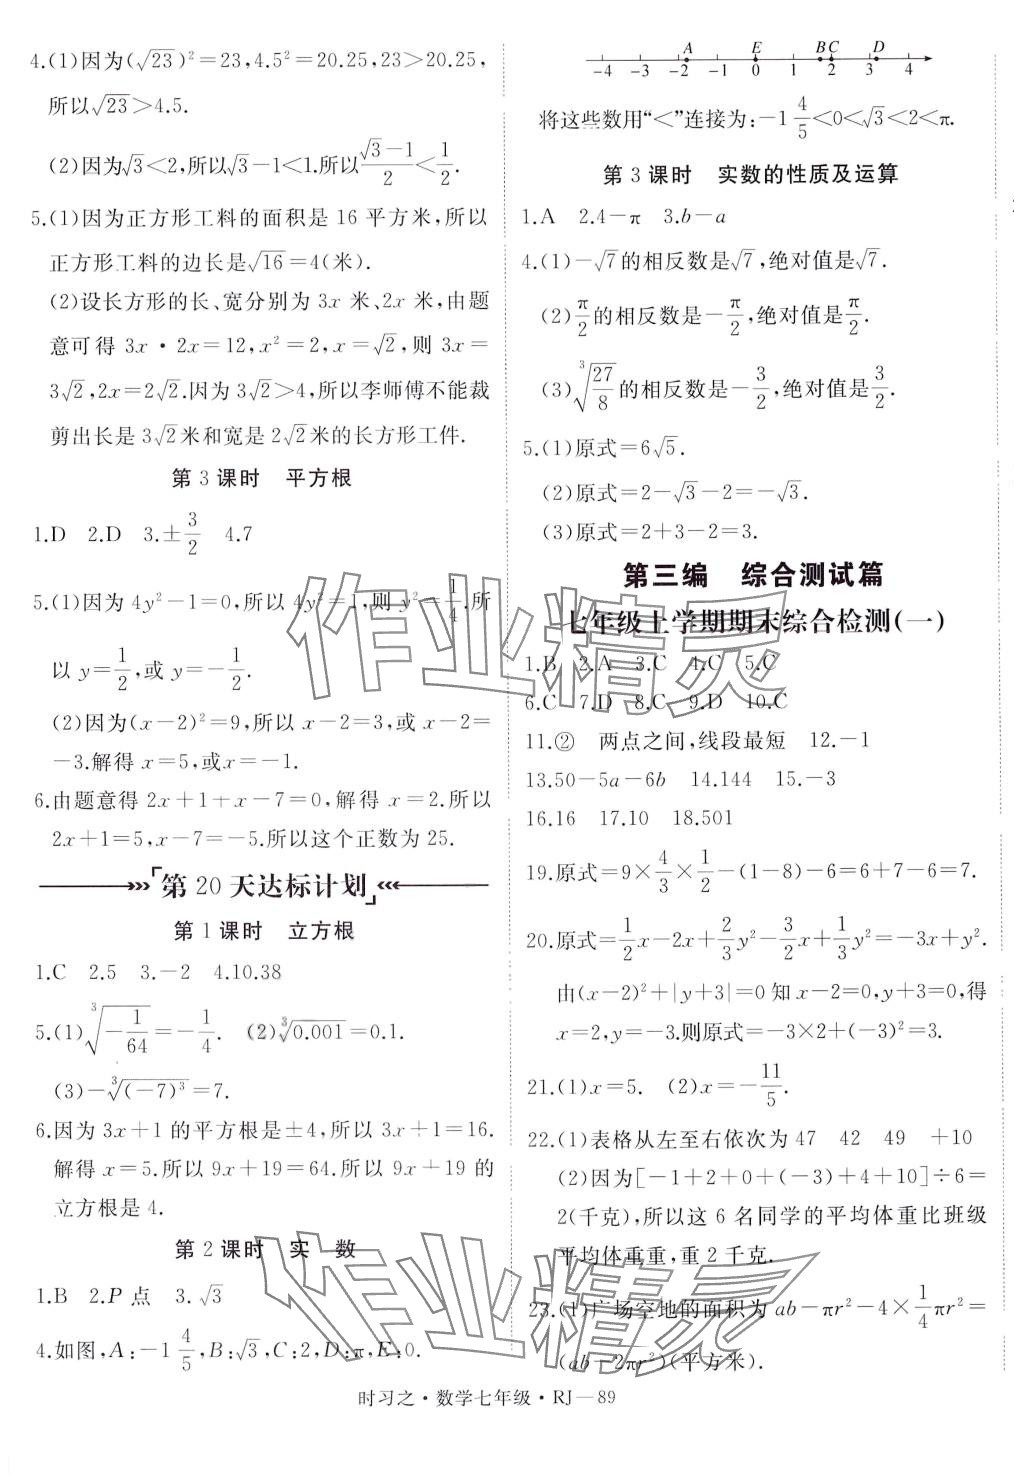 4.(1)因为(√23)²=23,4.5²=20.25,23>20.25,
所以√23>4.5.
(2)因为√3<2,所以√3-1<1.所以(√3-1)/2<1/2.
5.(1)因为正方形工料的面积是 16 平方米,所以
正方形工料的边长是√16=4(米).
(2)设长方形的长、宽分别为 3x 米、2x 米,由题
意可得 3x·2x=12,x²=2,x=√2,则 3x=
3√2,2x=2√2.因为 3√2>4,所以李师傅不能裁
剪出长是 3√2米和宽是 2√2米的长方形工件.
第 3 课时 平方根
1.D 2.D 3.±3/2 4.7
5.(1)因为 4y²-1=0,所以 4y²=1,则 y²=1/4.所
以 y=1/2,或 y=-1/2.
(2)因为(x-2)²=9,所以 x-2=3,或 x-2=
-3.解得 x=5,或x=-1.
6.由题意得 2x+1+x-7=0,解得 x=2.所以
2x+1=5,x-7=-5.所以这个正数为 25.
第 20 天达标计划
第 1 课时 立方根
1.C 2.5 3.-2 4.10.38
5.(1)∛(-1/64)=-1/4. (2)∛0.001=0.1.
(3)-∛(-7)³=7.
6.因为 3x+1 的平方根是±4,所以 3x+1=16.
解得 x=5.所以 9x+19=64.所以 9x+19 的
立方根是 4.
第 2 课时 实 数
1.B 2.P 点 3.√3
4.如图,A:-1 4/5,B:√3,C:2,D:π,E:0.
A E B C D
-4 -3 -2 -1 0 1 2 3 4
将这些数用“<”连接为:-1 4/5<0<√3<2<π.
第 3 课时 实数的性质及运算
1.A 2.4-π 3.b-a
4.(1)-√7的相反数是√7,绝对值是√7.
(2)π/2的相反数是-π/2,绝对值是π/2.
(3)∛(27/8)的相反数是-3/2,绝对值是3/2.
5.(1)原式=6√5.
(2)原式=2-√3-2=-√3.
(3)原式=2+3-2=3.
第三编 综合测试篇
七年级上学期期末综合检测(一)
1.B 2.A 3.C 4.C 5.C
6.C 7.D 8.C 9.D 10.C
11.② 两点之间,线段最短 12.-1
13.50-5a-6b 14.144 15.-3
16.16 17.10 18.501
19.原式=9×4/3×1/2-(1-8)-6=6+7-6=7.
20.原式=1/2x-2x+2/3y²-3/2x+1/3y²=-3x+y².
由(x-2)²+|y+3|=0 知 x-2=0,y+3=0,得
x=2,y=-3.则原式=-3×2+(-3)²=3.
21.(1)x=5. (2)x=-11/5.
22.(1)表格从左至右依次为 47 42 49 +10
(2)因为[-1+2+0+(-3)+4+10]÷6=
2(千克),所以这 6 名同学的平均体重比班级
平均体重重,重 2 千克.
23.(1)广场空地的面积为 ab-πr²-4×1/4πr²=
(ab-2πr²)(平方米).
时习之·数学七年级·RJ—89
作业精灵
作业精灵